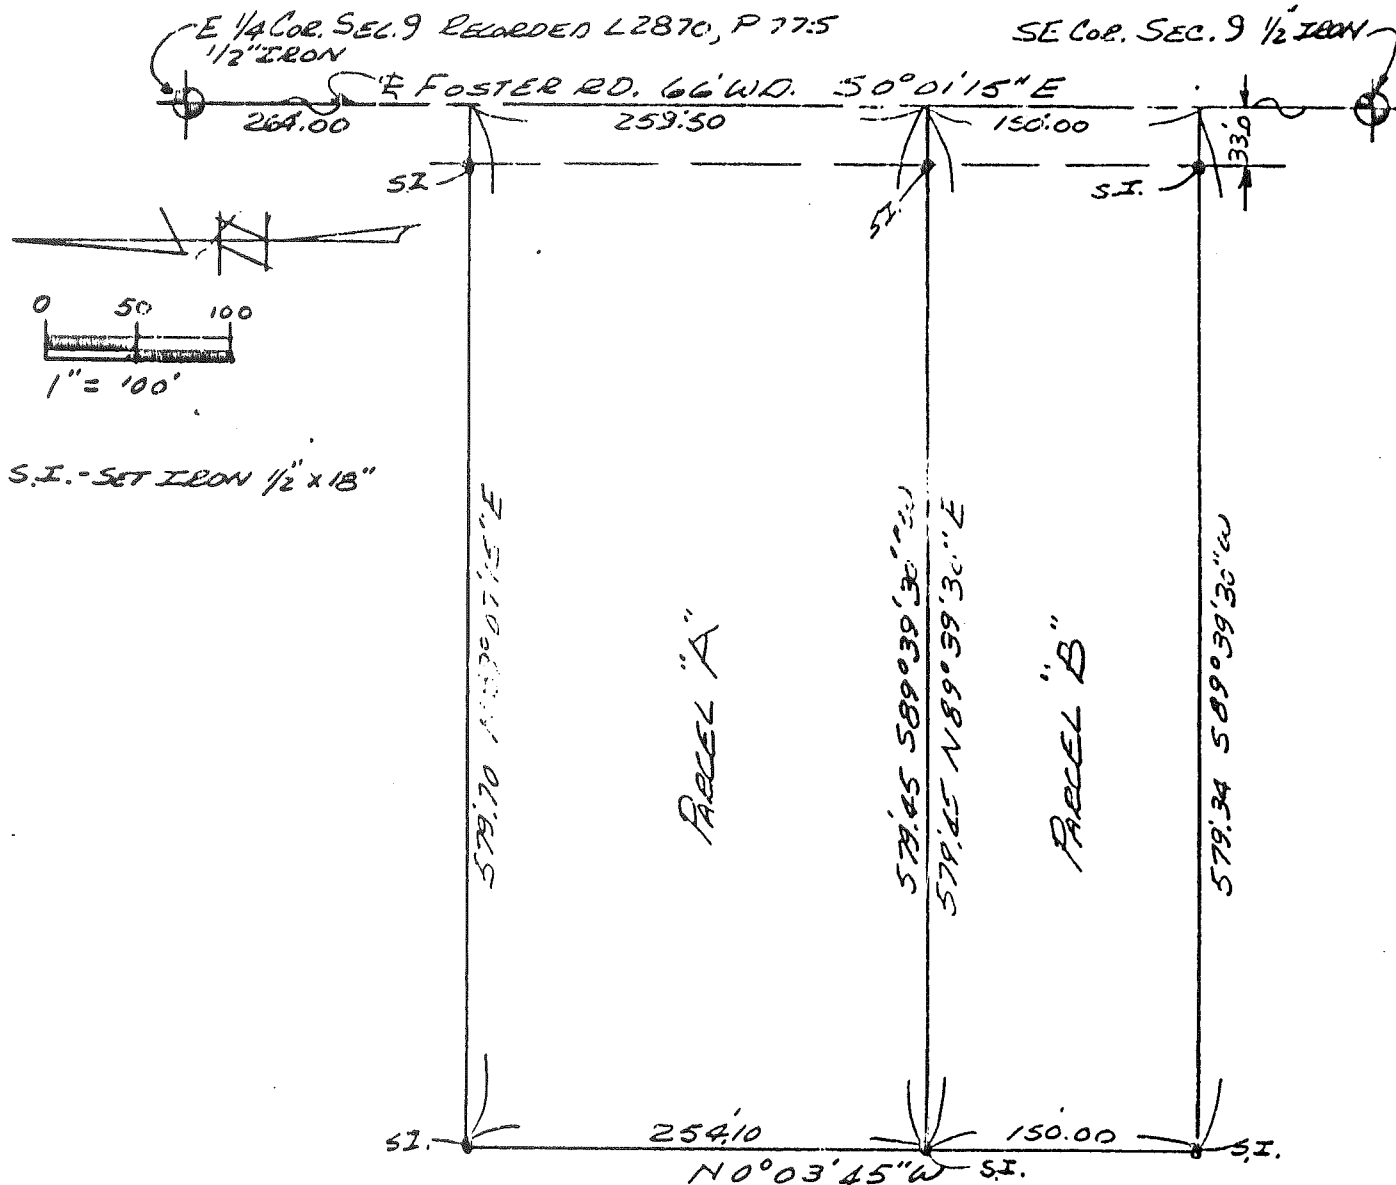 E 1/4 COR. SEC. 9 RECORDED L2870, P 775
1/2" IRON
SE COR. SEC. 9 1/2" IRON
E FOSTER RD. 66' WD. S0°01'15"E
264.00
259.50
150.00
33.0
S.I.
S.I.
S.I.
N
0 50 100
1" = 100'
S.I. - SET IRON 1/2" x 18"
579.70 E
PARCEL "A"
579.45 S89°39'30"W
579.45 N89°39'30"E
PARCEL "B"
579.34 S89°39'30"W
S.I.
254.10
150.00
S.I.
N0°03'45"W
S.I.